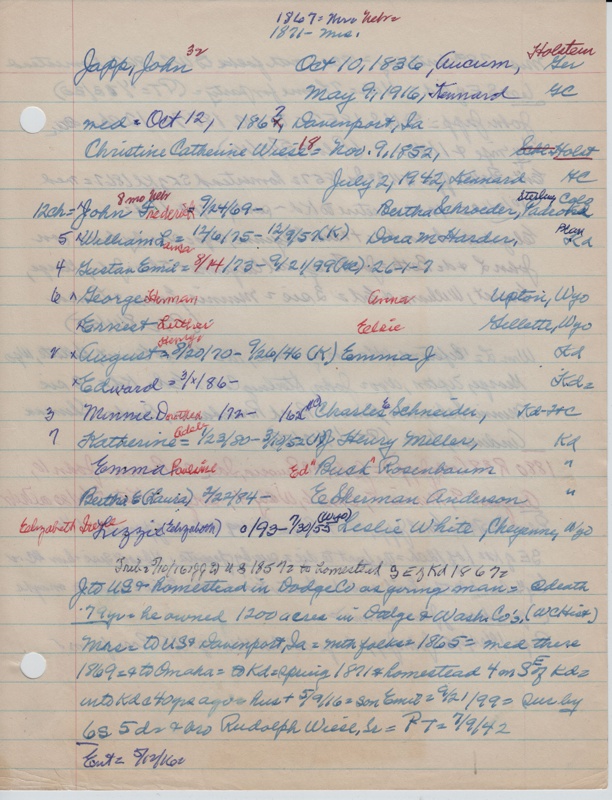 1867 = Mrs Nebr
1871 - Mrs.
Holstein
Japp, John 32 Oct 10, 1836, Aucum, Ger
May 9, 1916, Kennard GC
med = Oct 12, 186? Davenport, Ia
Christine Catherine Wiese 18 = Nov. 9, 1852, Holst
July 2, 1942, Kennard HC
8 mo Nebr Sterling Colo
12ch = John Frederick = 9/24/69 - Bertha Schroeder,
5 William L = 12/6/75 - 12/9/52 (K) Dora M Harder, Kd
4 Gustav Emil = 8/14/73 - 9/21/99 26-1-7
6 George Herman Anna Upton, Wyo
Ernest Luther Elsie Gillette, Wyo
Henry
2 x August = 9/20/70 - 9/26/46 (K) Emma J Kd
x Edward = 3/x/86 - Kd =
3 Minnie Dorothea 172 - 162 Charles E Schneider, Kd - HC
Adele
7 Katherine = 1/23/80 - Henry Miller, Kd
Emma Pauline Ed "Bush" Rosenbaum "
Bertha E (Laura) 2/22/84 - E Sherman Anderson "
Elizabeth Lizzie (Elizabeth) 0/93 - 7/30/55 (Wyo) Leslie White, Cheyenne, Wyo
Trib = 5/10/16 pg 3 US 1857 = to homestead 3 E of Kd 1867 =
J to US & homestead in Dodge Co as young man = @ death
79 yr = he owned 1200 acres in Dodge & Wash. Co's, (WC Hist)
Mrs = to US & Davenport, Ia = with folks = 1865 = med there
1869 = & to Omaha = to Kd = spring 1871 & homestead 4 m SE of Kd =
into Kd 40 yrs ago = Hus + 5/9/16 = son Emil = 9/21/99 = Sur by
6s 5 ds & bro Rudolph Wiese, Sr = PT = 7/9/42
Ent = 5/12/16 =